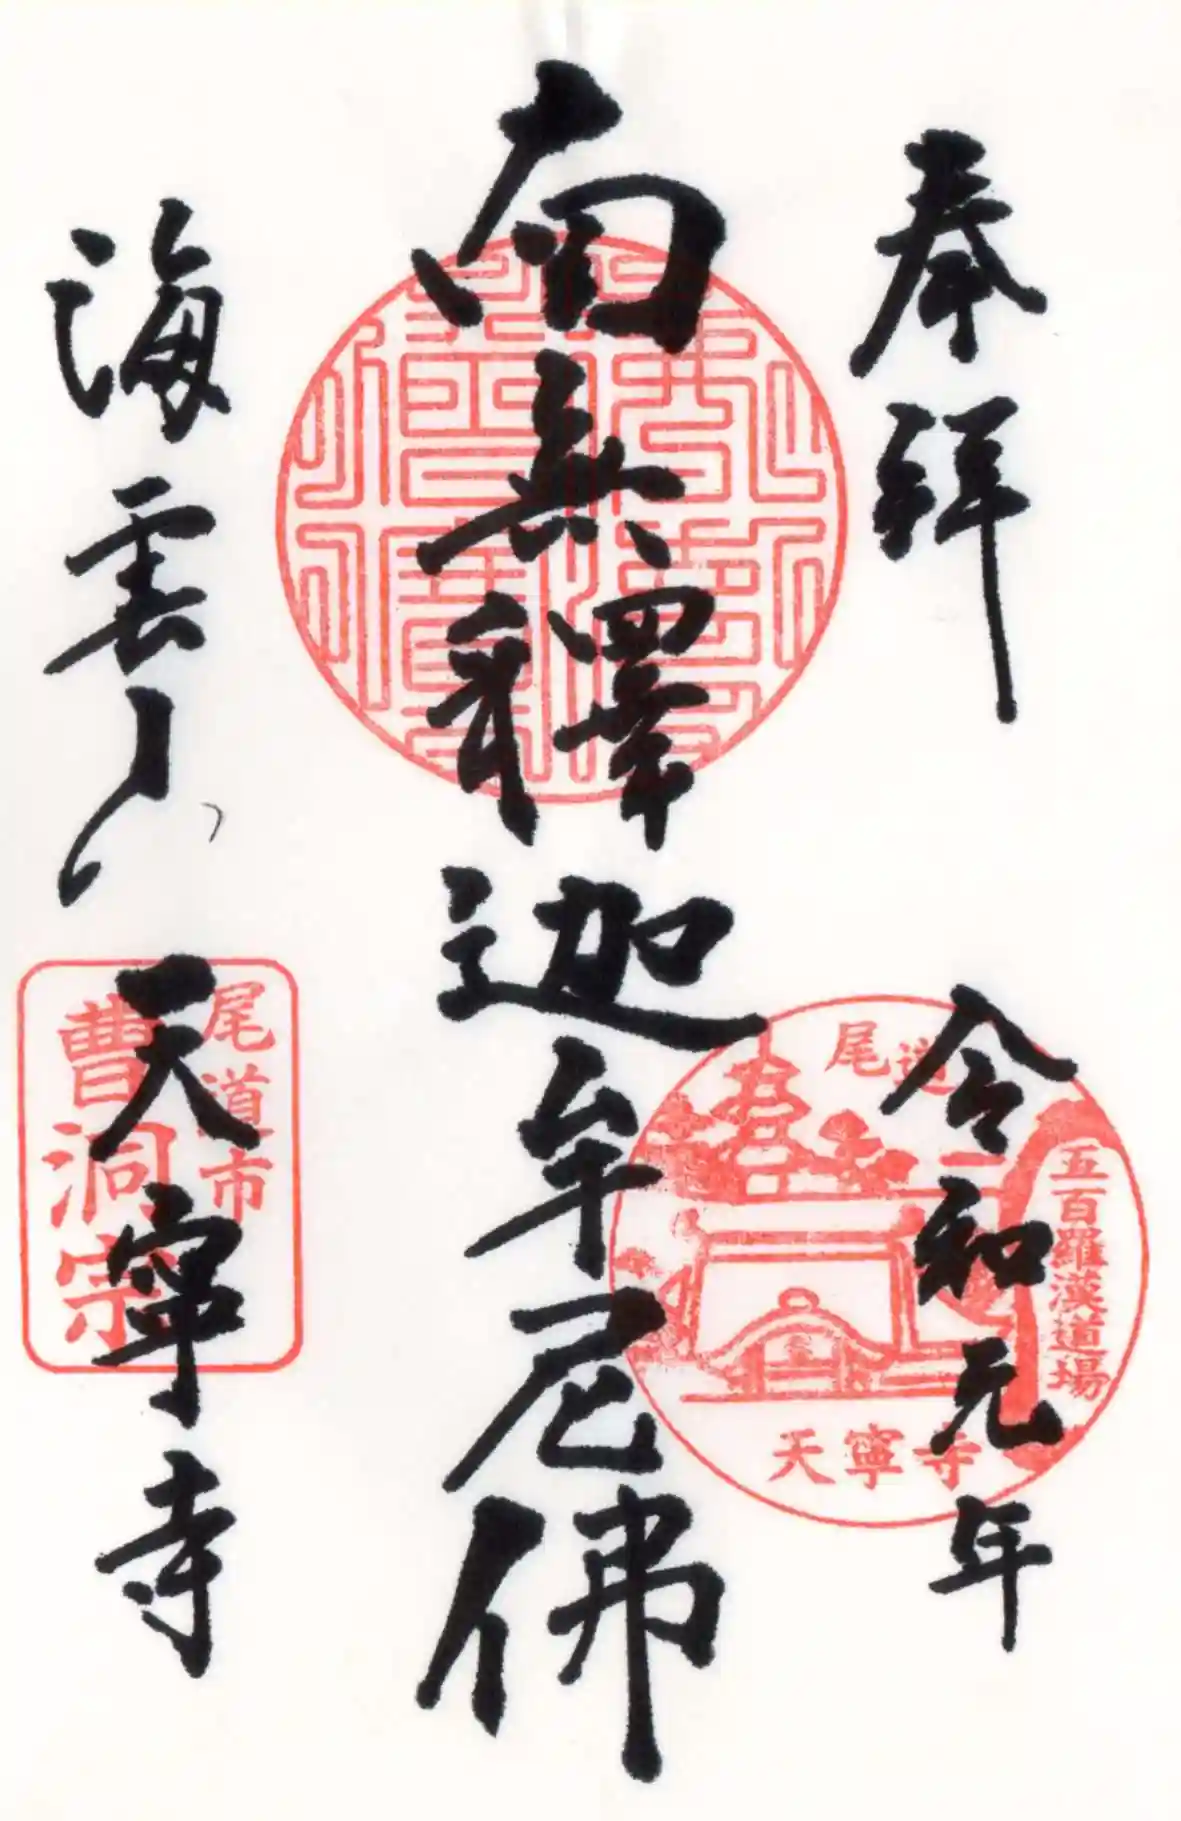 奉拝
令和元年
南無釋迦牟尼佛
海雲山
天寧寺
尾道
五百羅漢道場
天寧寺
尾道市
曹洞宗